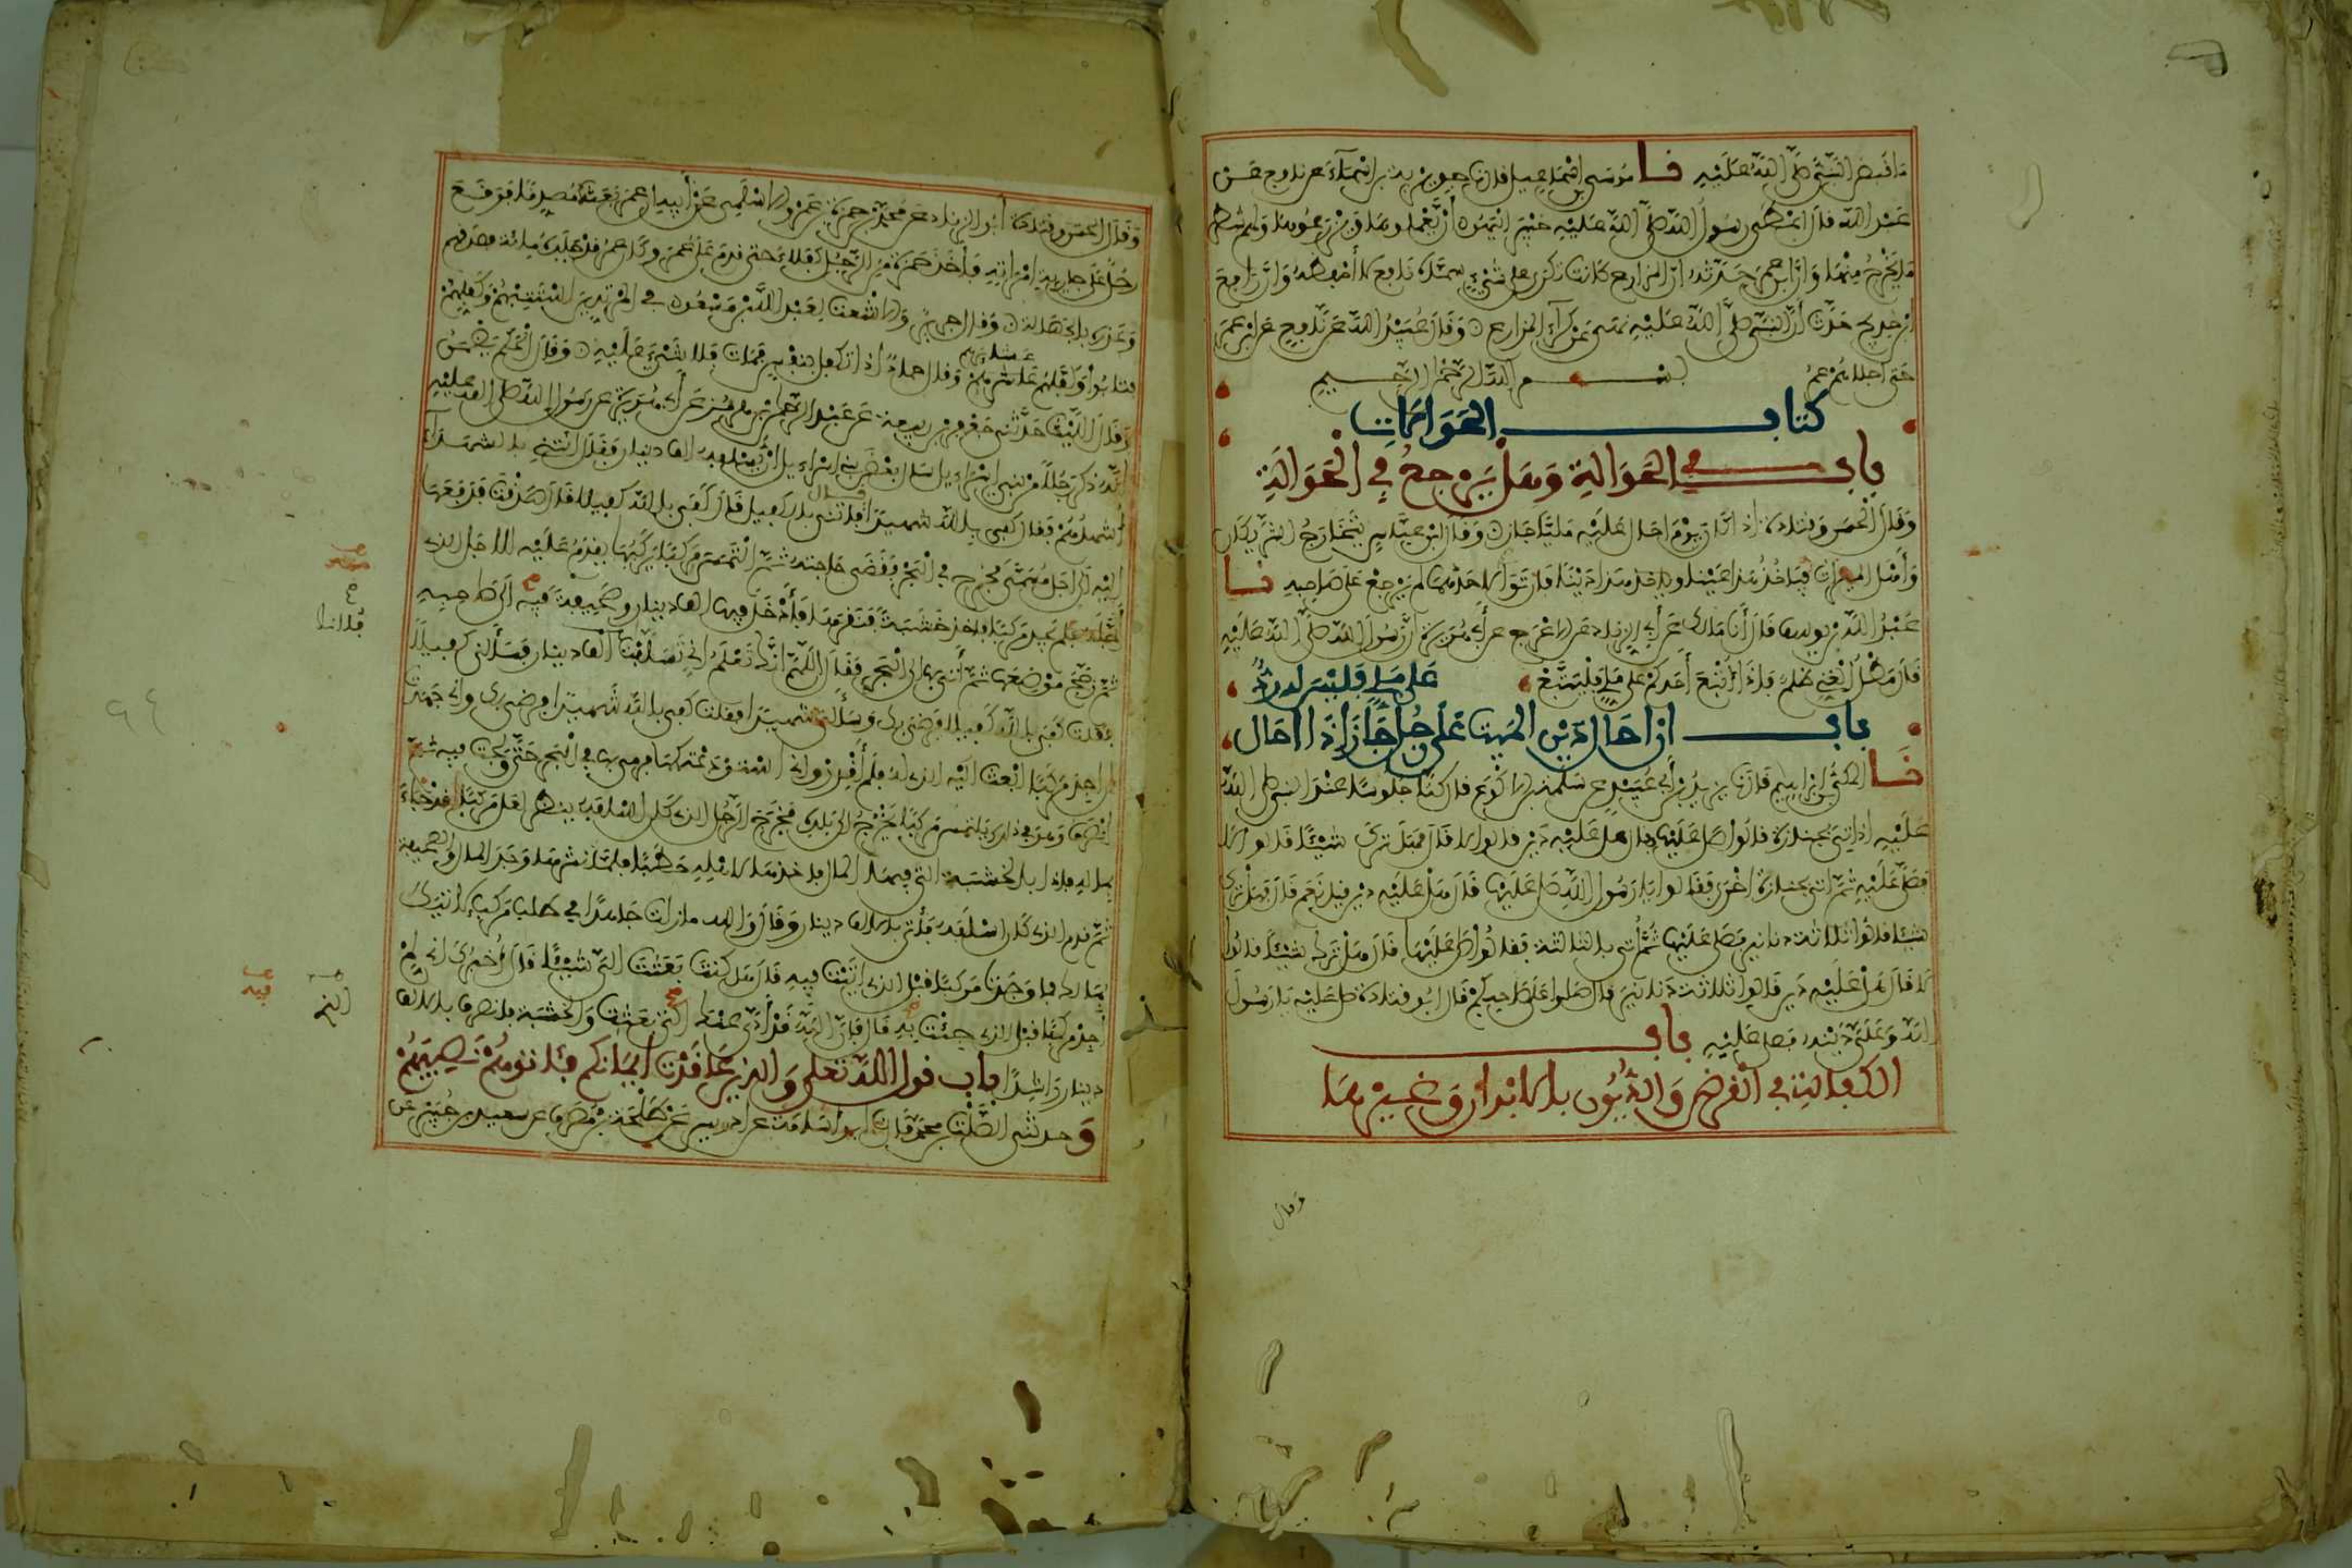 مَا قَبَضَ النَّبِيُّ صَلَّى اللَّهُ عَلَيْهِ نا مُوسَى بن إسْمَاعِيل قال نا جويرية بن أسْمَاءَ عن نافع عن
عَبْد الله قال أعْطَى رسُولُ اللَّه صَلَّى اللَّه عَلَيْهِ خَيْبَرَ اليَهُودَ أنْ يَّعْمَلوهَا وَيَزْرَعُوهَا وَلهم شطر
مَا يَخْرُجُ مِنْهَا وَأنَّ ابن عمر حَدَّثَه أنّ المزارع كَانَت تكرى على شَيْءٍ سَمَّاهُ نَافِع لا أحْفِظُهُ وَأنَّ رَافِعَ
ابن خديج حَدَّث أنّ النبيَّ صَلَّى اللَّهُ عَلَيْهِ نهى عَنْ كِرَاءِ المزارع وَقَالَ عُبَيْدُ الله عَنْ نَّافِعٍ عن ابن عمَرَ
حَتى أجلاهُم عمرُ
بسم الله الرحمن الرحيم
كتاب الحَوَالاتِ
باب في الحَوَالةِ وَهَلْ يَرْجِعُ في الْحَوَالَةِ
وَقَالَ الْحسَن وَقتادة إذا كَانَ يَوْمَ أحَالَ عَلَيْهِ مَلِيًّا جَازَ وَقَالَ ابْن عبَّاس يَتَخَارَجُ الشَّرِيكَانِ
وَأهْلُ الميراث فيَأخُذُ هَذَا عَيْنًا وياخذ هَذَا دَيْنًا فإن تَوَى لأحَدهما لم يَرْجِعْ عَلَى صَاحِبه نا
عَبْدُ اللَّه بن يوسف قَالَ أنَا مَالك عَن أبي الزناد عن الأعْرَج عن أبي هُرَيرة أنّ رَسُولَ اللَّه صَلَّى اللَّه عَلَيْهِ
قَالَ مَطْلُ الْغَنِي ظلمٌ فإذَا أُتْبِعَ أحَدكمْ عَلَى مَلِيٍّ فَلْيَتَّبِعْ عَلى مَلِيٍّ فَلَيْسَ له رَدٌّ
باب إذا أحَالَ دَيْن الميّت عَلَى رجُلٍ جَازَ وَإذَا أحَال
نَا المكّيُّ بن إبراهيم قَالَ نا يزيدُ بْنُ أبي عُبَيْد عن سَلَمة بن الأكْوَع قال كنَّا جلوسًا عنْدَ النبي صلى اللَّه
عَلَيْهِ إذ أتِيَ بجنازة فقالُوا صَلِّ عَلَيْهَا فقال هل عَلَيْهِ دَيْن قالوا لا قَالَ فهَلْ تَركَ شَيْئًا قَالُوا لا
فصَلَّى عَلَيْهِ ثمَّ أتي بجنازة أخْرَى فَقَالُوا يا رَسُولَ اللَّهِ صَلِّ عَلَيْهَا قَالَ هَلْ عَلَيْهِ دين قيل نَعَم قَالَ فَهَلْ ترك
شيئا قالوا ثلاثة دنانير فصَلَّى عَلَيْهَا ثُمَّ أتي بالثالثة فقالُوا صَلِّ عَلَيْهَا قَالَ هَلْ تَرك شيْئًا قالوا
لَا قَالَ هَلْ عَلَيْهِ دَين قَالوا ثلاثَة دَنانير قال صَلوا عَلَى صَاحبكُمْ قَالَ أبُو قتادة صَلِّ عَلَيْه يَا رَسُولَ
اللَّه وَعَلَيَّ دَيْنُه فصَلى عَلَيْهِ باب
الكفالة في القرْض وَالدُّيُونِ بالأبْدان وَغيْرهَا
وقال
وَقَالَ الحسَن وقتادة أبُو الزناد عَن مُحَمَّد بْن حمزة بْن عَمْرو الأسْلَمِي عَنْ أبيه أن عمَرَ بَعَثَهُ مُصَدِّقًا فَوَقَعَ
رجُلٌ عَلَى جَارِيةِ امْرَاتِهِ فأخَذ حَمزة مِن الرَّجُل كُفَلاءَ حَتى قدمَ عَلَى عُمَر وكانَ عمرُ قدْ جَلَدَهُ مائة فصَدقهم
وَعَذَرَهُ بالجهَالة وَقال جرير وَالأشعث لِعَبْد اللَّه بْن مَسْعُود في المرتدين اسْتَتِبْهُم وكَفِّلهُمْ
فتابُوا وَكَفَلَهُم عَشائرهُم وَقال حمادٌ إذا تكفل بنفْس فَمَات فلا شَيْءَ عَلَيْهِ وَقَالَ الْحَكَم يَضْمَنُ
وَقَالَ اللَّيْث حَدَّثَني جَعْفَر بن ربيعة عَن عَبْد الرَّحْمَن بْن هُرْمُز عَن أبي هُرَيرة عن رسُول اللَّه صلى الله عَلَيْهِ
أنّه ذكرَ رَجُلًا مّن بَني إسْرَاءيل سَأل بَعْضَ بني إسْرَاءيل أنْ يُسْلِفه ألف دينار فَقَالَ ائتني بالشهَدَاءِ
أشهدُهُمْ فقال كفى باللَّه شهيدًا قال فأتني بالكَفِيل قَالَ كَفَى باللَّه كَفيلا قَالَ صَدَقْتَ فَدَفَعَهَا
إليْهِ إلَى أجَل مُّسَمًّى فخرَج في الْبَحْر فَقَضَى حَاجَتَهُ ثُمَّ الْتَمَسَ مَرْكَبًا يّرْكَبُهَا يقْدَمُ عَلَيْهِ للأجَل الذي
أجَّلَه فَلم يجد مَرْكبًا فأخذ خَشَبَةً فَنَقَرَهَا فَأَدْخَلَ فيهَا ألف دينار وصَحِيفةً فيه إلَى صَاحِبِهِ
ثمّ زَجَّجَ مَوْضِعَهَا ثمَّ أتى بها إلى الْبَحر فَقَال اللَّهُمَّ إنكَ تَعْلَمُ أنِّي تَسَلَّفْتُ ألف دينار فَسَألَني كفيلًا
فقلت كفَى باللَّه كَفيلا فرَضِي بك وَسَألني شهيدًا فقلت كفى باللَّه شهيدًا فرضي بك وَإني جَهَدتُّ
أن أجدَ مَرْكَبًا أبْعَثُ إليه الذي لَهُ فلم أقْدِرْ وَإني اسْتَوْدَعْتُكَهَا فرمى بها في الْبَحْر حَتَّى وَلَجَتْ فيه ثمَّ
انصَرَفَ وَهو في ذلك يَلتمس مَرْكبًا يَّخْرُجُ إلَى بَلَده فَخَرَجَ الرَّجُل الذي كَانَ أسْلَفَهُ يَنظر لعَلَّ مَرْكَبًا قدْ جَاءَ
بماله فإذا بالخَشبَة التي فيهَا المال فأخذهَا لأهْلِه حَطَبًا فلمَّا نشرهَا وَجَدَ المال والصحيفة
ثمَّ قدم الذي كَانَ أسْلَفَهُ فَأتَى بالألف دينار وَقَالَ وَالله مازلت جَاهدًا في طلب مَرْكب لآتيَك
بِمَالك فما وَجَدْتُ مَرْكبًا قبْلَ الذي أتَيْت فيهِ قَالَ هَل كُنْتَ بَعَثْتَ إليَّ شَيْئًا قَالَ أخْبرُكَ أني لم
أجِدْ مَرْكَبًا قبْلَ الذي جِئْت بِهِ قَالَ فَإنّ اللَّهَ قَدْ أدَّى عنكَ الذي بَعَثْتَ وَالخشبَة فانصرف بالألف
دينار رَاشِدًا باب قول الله تعلى وَالذينَ عَاقَدْتَ أيْمَانكم فَئَاتوهُمْ نَصِيبَهُمْ
وَحدثني الصَّلْت بن محمَّد قَالَ نا أبو أسَامَة عن إدريس عَنْ طَلْحَة بن مُصَرِّف عن سَعِيد بن جُبَيْر عَن